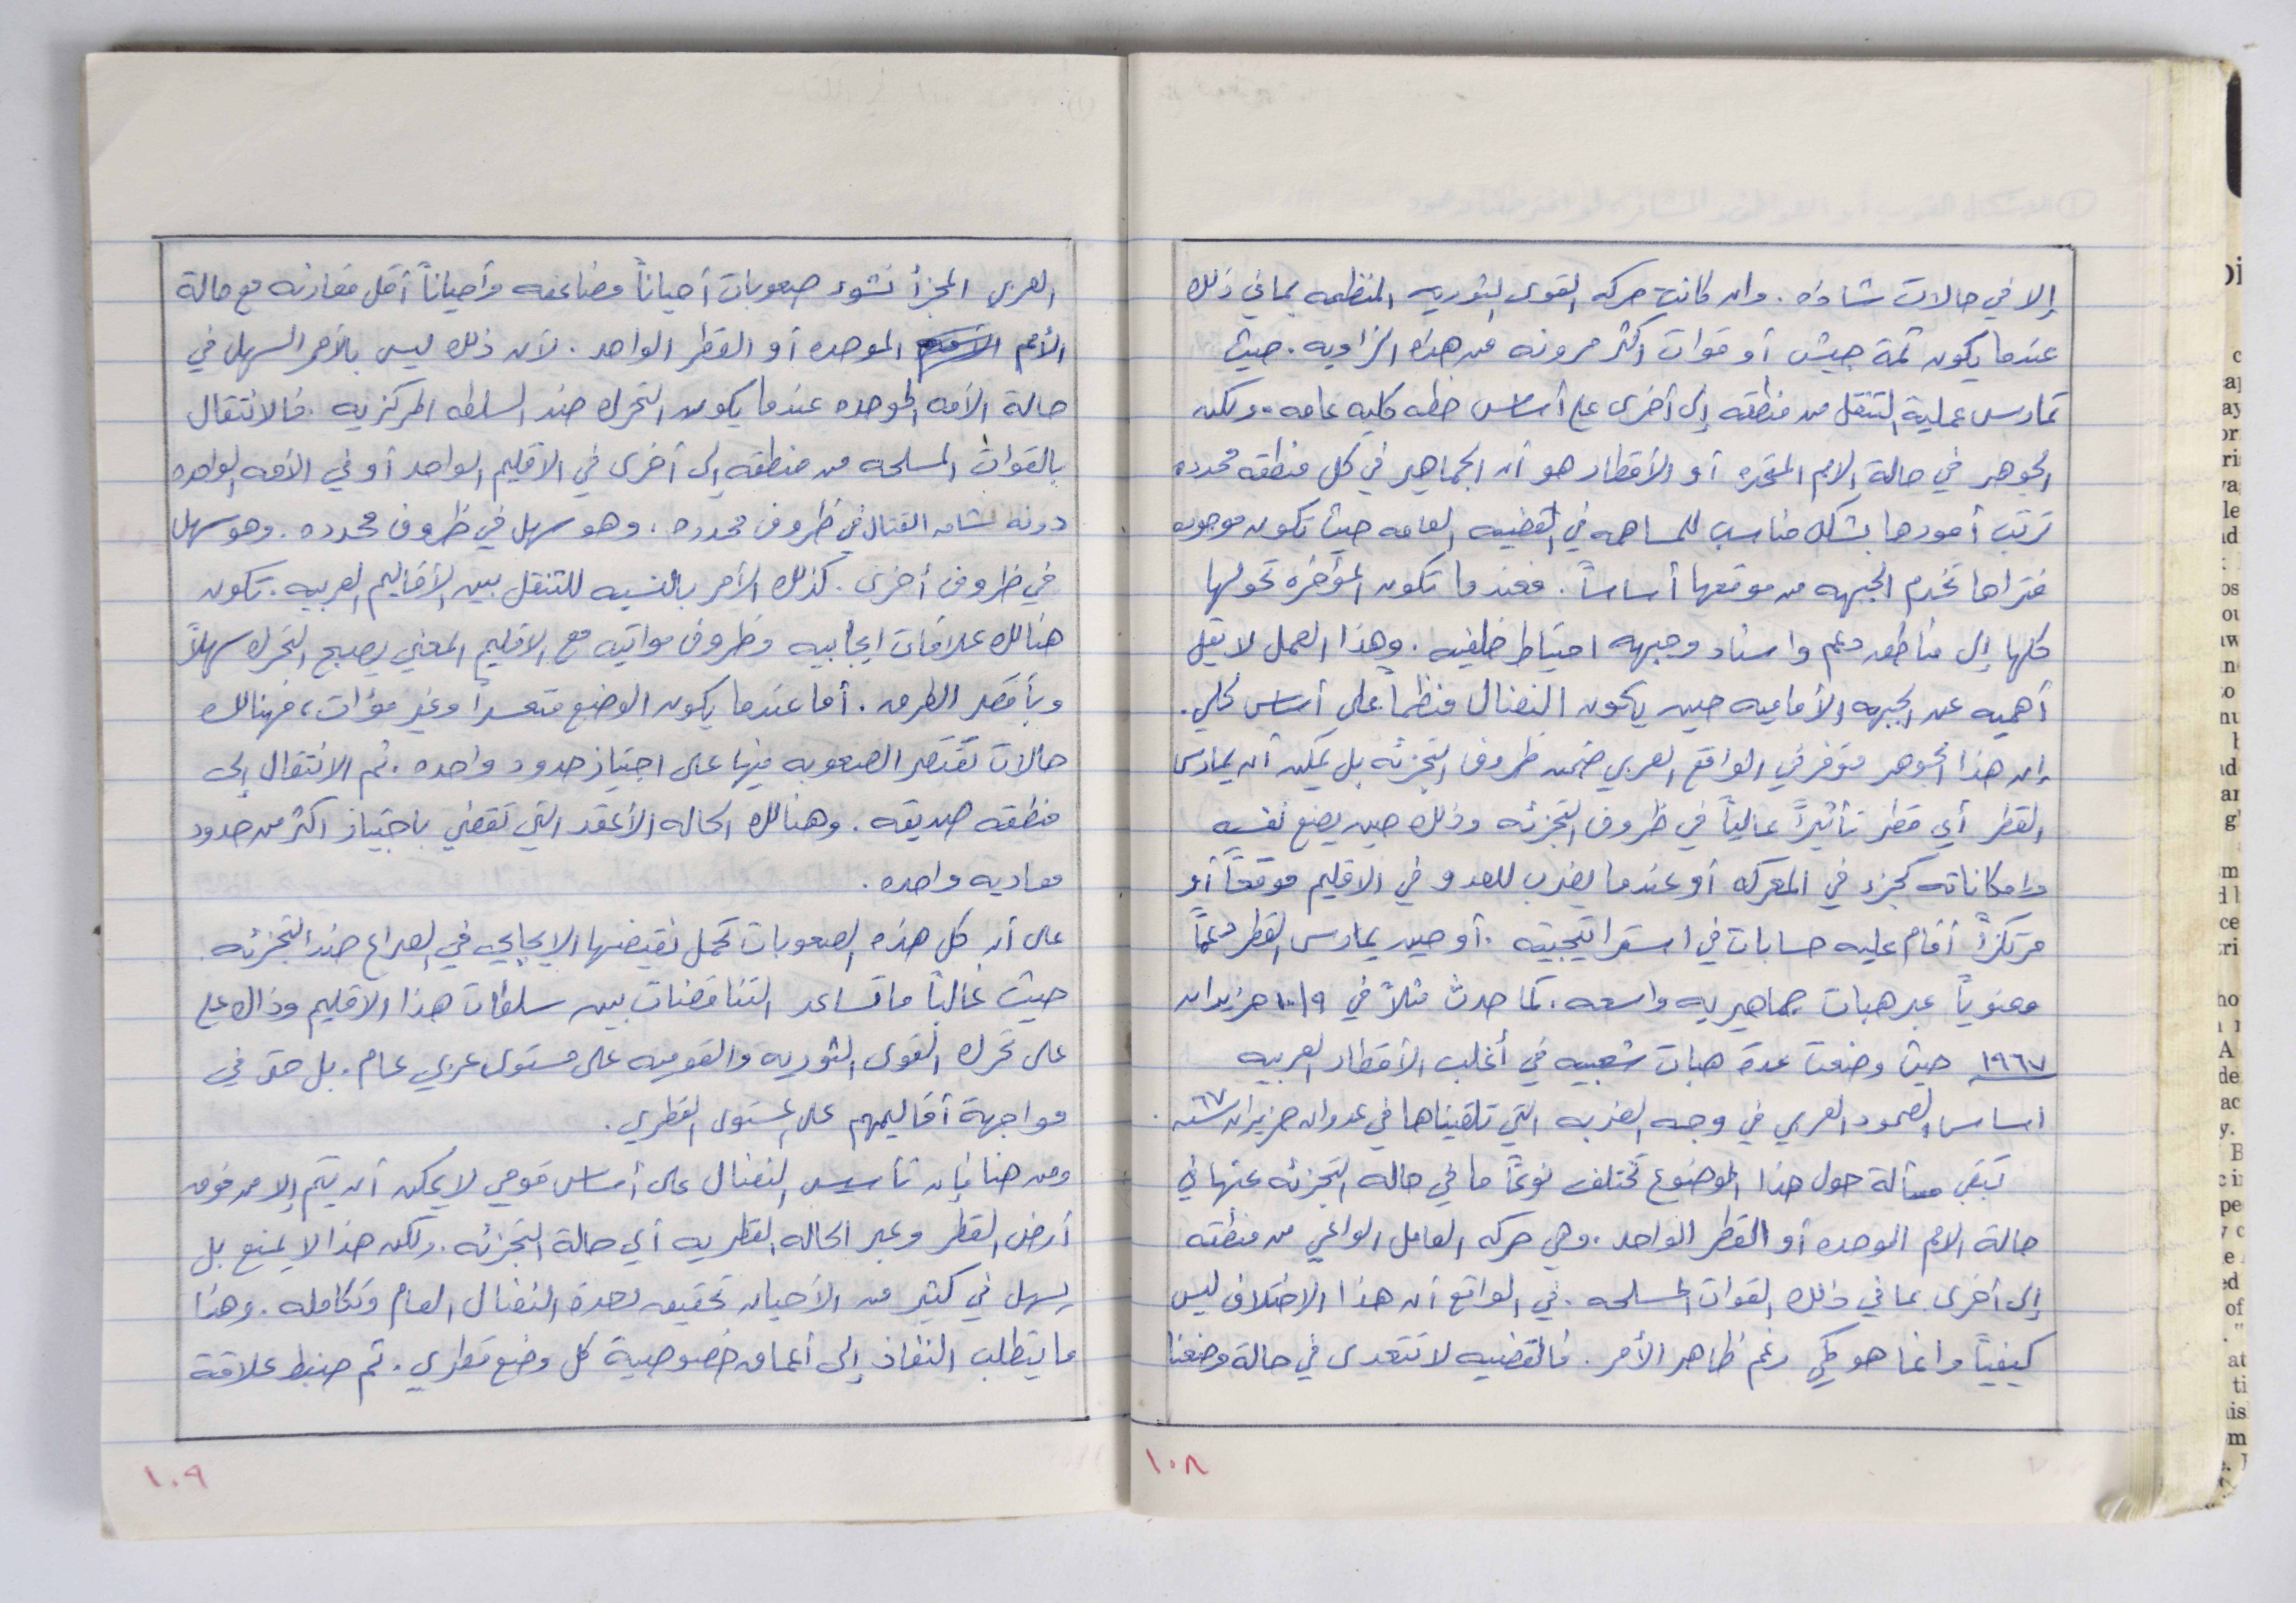 إلا في حالات شاذه. وان كانت حركه القوى الثوريه المنظمه بما في ذلك
عندما يكون ثمة جيش أو قوات اكثر مرونه من هذه الزاويه. حيث
تمارس عملية التنقل من منطقه إلى أخرى على أساس خطه كليه عامه. ولكن
الجوهر في حالة الامم المتحده أو الأقطار هو أن الجماهير في كل منطقه محدده
ترتب أمورها بشكل مناسب للمساهمه في القضيه العامه حيث تكون موجوده
فتراها تخدم الجبهه من موقعها أساساً. فعندما تكون المؤخره تحولها
كلها إلى مناطق دعم واسناد وجبهه احتياط خلفيه. وهذا العمل لا يقل
أهميه عن الجبهه الأماميه حين يكون النضال منظماً على أساس كلي.
إن هذا الجوهر متوفر في الواقع العربي ضمن ظروف التجزئه بل يمكن أن يمارس
القطر أي قطر تأثيراً عالياً في ظروف التجزئه وذلك حين يضع نفسه
وامكاناته كجزء في المعركه أو عندما يضرب للعدو في الاقليم موقعاً أو
مرتكزاً أقام عليه حسابات في استراتيجيته. أو حين يمارس القطر دعماً
معنوياً عبر هبات جماهيريه واسعه. كما حدث مثلاً في ٩/١٠ حزيران
١٩٦٧ حيث وضعت عدة هبات شعبيه في أغلب الأقطار العربيه
اساس الصمود العربي في وجه الضربه التي تلقيناها في عدوان حزيران سنه ٦٧.
تبقى مسألة حول هذا الموضوع تختلف نوعاً ما في حاله التجزئه عنها في
حالة الامم الموحده أو القطر الواحد. وهي حركه العامل الواعي من منطقه
إلى أخرى بما في ذلك القوات المسلحه. في الواقع أن هذا الاختلاف ليس
كيفياً وانما هو كمي رغم ظاهر الأمر. فالقضيه لا تتعدى في حالة وضعنا
١٠٨
العربي المجزأ نشوء صعوبات أحياناً مضاعفه وأحياناً أقل مقارنه مع حالة
الأمم الموحده أو القطر الواحد. لأن ذلك ليس بالأمر السهل في
حالة الأمه الموحده عندما يكون التحرك ضد السلطه المركزيه. فالانتقال
بالقوات المسلحه من منطقه إلى أخرى في الاقليم الواحد أو في الأمه الواحده
دونه القتال في ظروف محدده، وهو سهل في ظروف محدده. وهو سهل
في ظروف أخرى. كذلك الأمر بالنسبه للتنقل بين الأقاليم العربيه. تكون
هنالك علاقات ايجابيه وظروف مواتيه مع الاقليم المعني يصبح التحرك سهلاً
وبأقصر الطرق. أما عندما يكون الوضع متعسراً وغير مؤات، فهنالك
حالات تقتصر الصعوبه فيها على اجتياز حدود واحده. ثم الانتقال إلى
منطقه صديقه. وهنالك الحاله الأعقد التي تقضي باجتياز اكثر من حدود
معاديه واحده.
على أن كل هذه الصعوبات تحمل نقيضها الايجابي في الصراع ضد التجزئه.
حيث غالباً ما تساعد التناقضات بين سلطات هذا الاقليم وذاك على
على تحرك القوى الثوريه والقوميه على مستوى عربي عام. بل حتى في
مواجهة أقاليمهم على المستوى القطري.
ومن هنا فإن تأسيس النضال على أساس قومي لا يمكن أن يتم إلا من فوق
أرض القطر وعبر الحاله القطريه أي حالة التجزئه. ولكن هذا لا يمنع بل
يسهل في كثير من الأحيان تحقيق وحدة النضال العام وتكامله. وهذا
ما يتطلب النفاذ إلى أعماق خصوصية كل وضع قطري. ثم ضبط علاقة
١٠٩